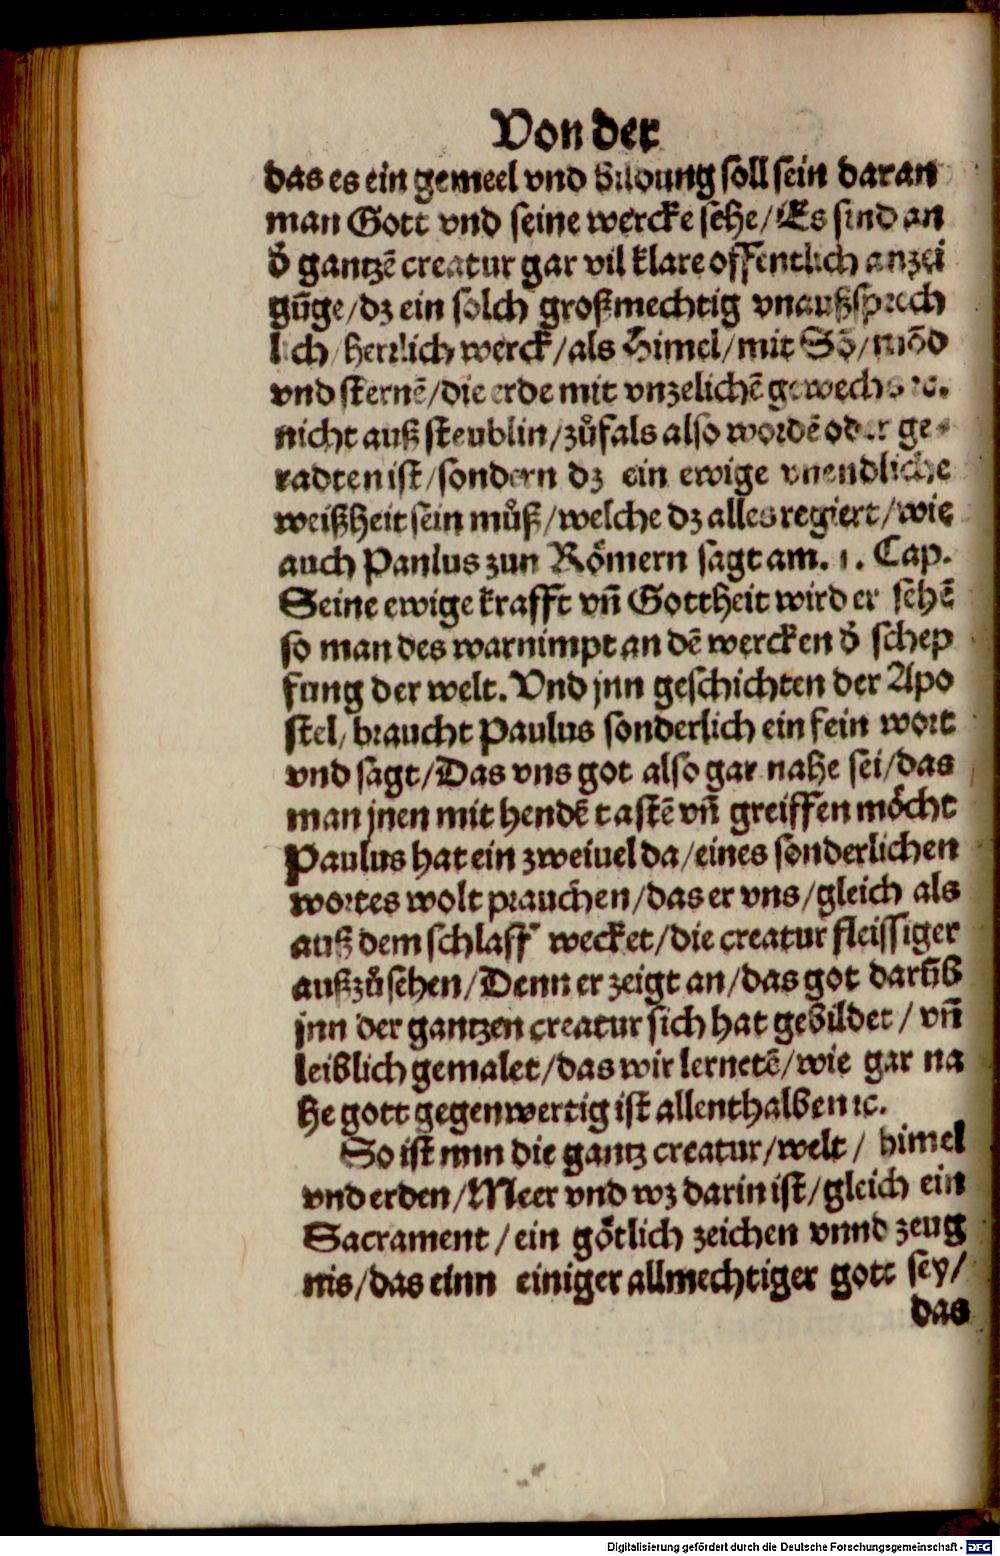 Von der
das es ein gemeel vnd bildung soll sein daran
man Gott vnd seine wercke sehe/Es sind an
d̈ gantzē creatur gar vil klare offentlich anzei
gūge/dz ein solch großmechtig vnaußsprech
lich/herrlich werck/als Himel/mit Sō/mōd
vnd sternē/die erde mit vnzelichē gewechs ⁊c.
nicht auß steublin/zůfals also wordē oder ge-
radten ist/sondern dz ein ewige vnendliche
weißheit sein můß/welche dz alles regiert/wie
auch Panlus zun Römern sagt am. 1. Cap.
Seine ewige krafft vn̄ Gottheit wird er sehē
so man des warnimpt an dē wercken d̈ schep
fung der welt. Vnd jnn geschichten der Apo
stel/braucht Paulus sonderlich ein fein wort
vnd sagt/Das vns got also gar nahe sei/das
man jnen mit hendē tastē vn̄ greiffen möcht
Paulus hat ein zweiuel da/eines sonderlichen
wortes wolt prauchen/das er vns/gleich als
auß dem schlaff wecket/die creatur fleissiger
außzůsehen/Denn er zeigt an/das got darūb
jnn der gantzen creatur sich hat gebildet/vn̄
leiblich gemalet/das wir lernetē/wie gar na
he gott gegenwertig ist allenthalben ⁊c.
So ist nun die gantz creatur/welt/himel
vnd erden/Meer vnd wz darin ist/gleich ein
Sacrament/ein götlich zeichen vnnd zeug
nis/das einn einiger allmechtiger gott sey/
das
Digitalisierung gefördert durch die Deutsche Forschungsgemeinschaft - DFG